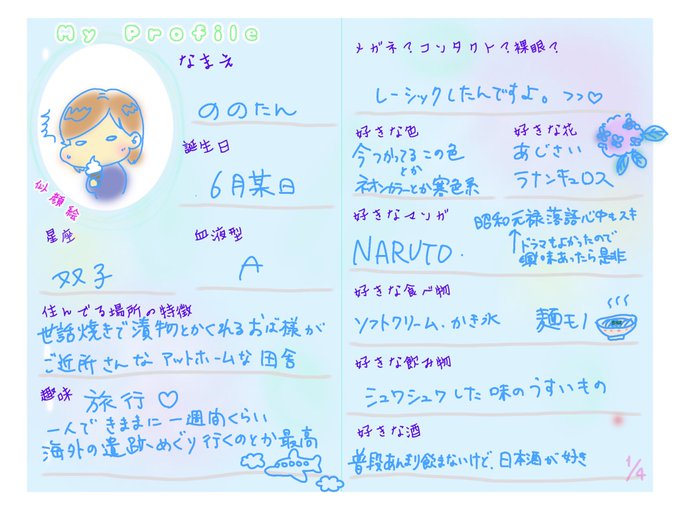 My Profile
なまえ
ののたん
誕生日
6月某日
似顔絵
星座
双子
血液型
A
住んでる場所の特徴
世話焼きで漬物とかくれるおば様が
ご近所さんな アットホームな 田舎
趣味
旅行♡
一人できままに一週間くらい
海外の遺跡めぐり行くのとか最高
メガネ?コンタクト?裸眼?
レーシックしたんですよ。>>♡
好きな色
今つかってるこの色
とか
ネオンカラーとか寒色系
好きな花
あじさい
ラナンキュロス
好きなマンガ
NARUTO.
昭和元禄落語心中もスキ
↑ドラマもよかったので
興味あったら是非
好きな食べ物
ソフトクリーム、かき氷 麺モノ
好きな飲み物
シュワシュワした味のうすいもの
好きな酒
普段あんまり飲まないけど、日本酒が好き
1/4